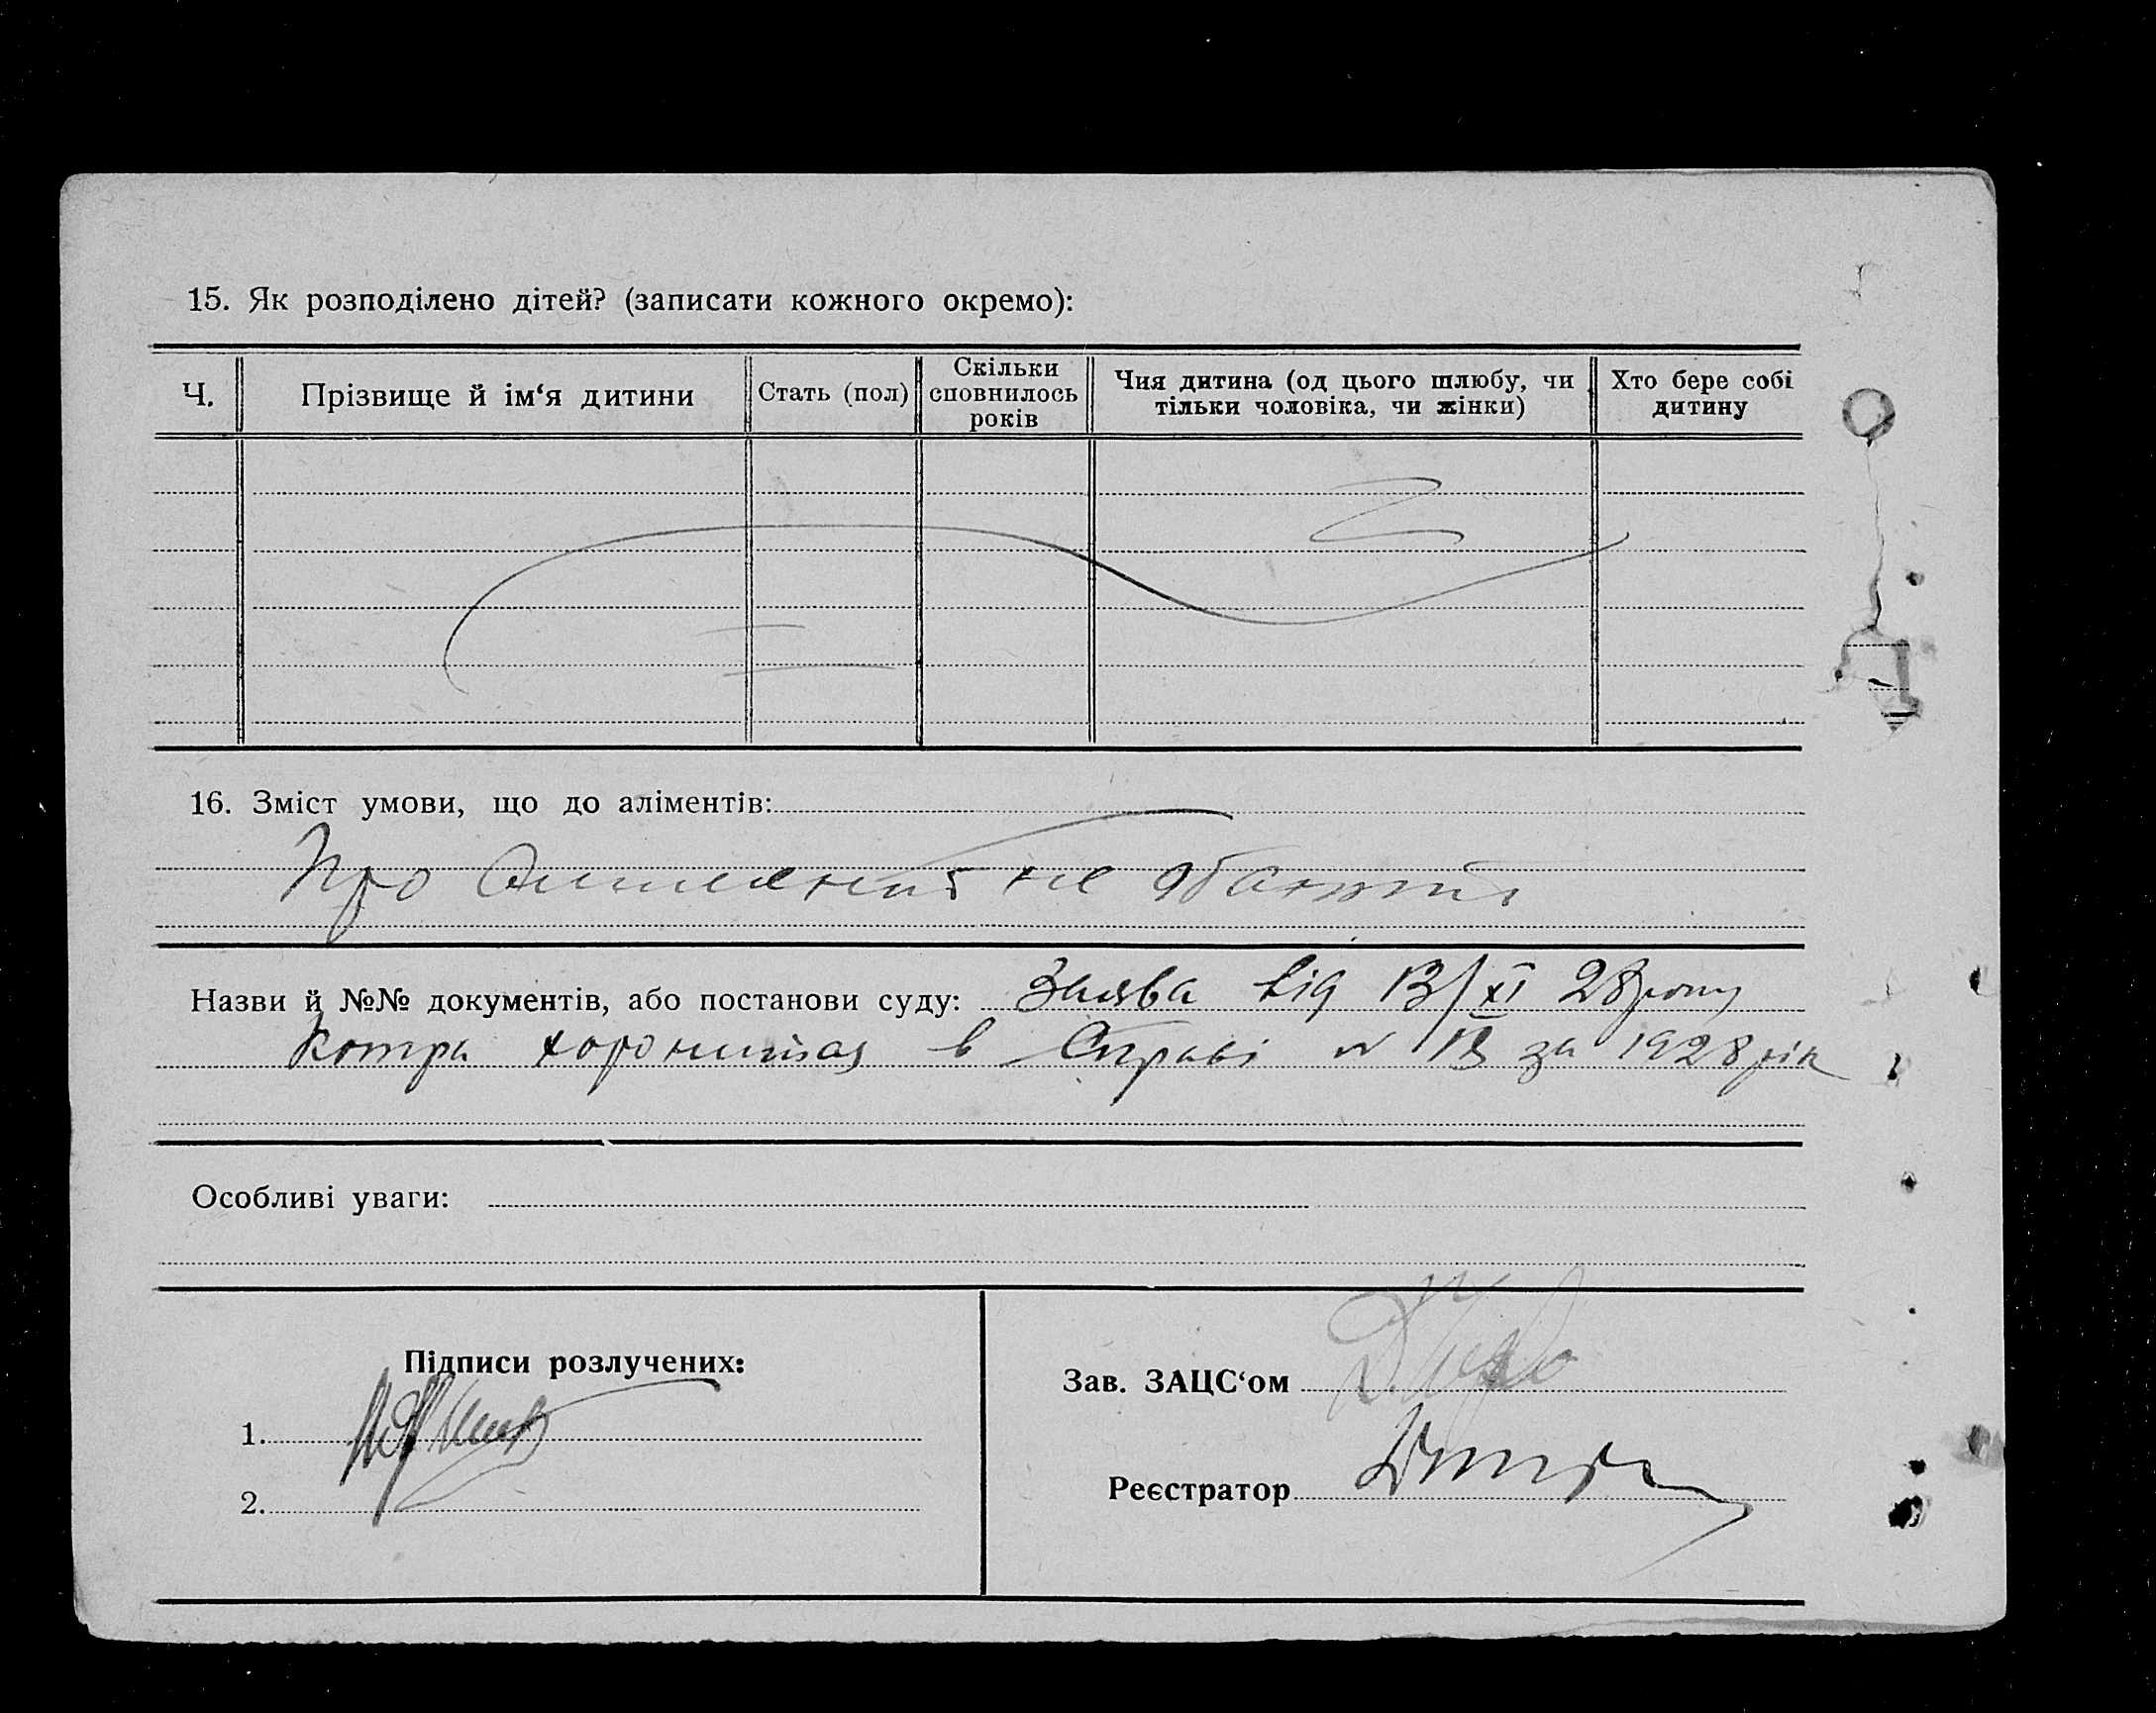 15. Як розподілено дітей? (записати кожного окремо):
Ч.
Прізвище й ім‘я дитини
Стать (пол)
Скільки
сповнилось
років
Чия дитина (од цього шлюбу, чи
тільки чоловіка, чи жінки)
Хто бере собі
дитину
16. Зміст умови, що до аліментів:
Про не
Назви й №№ документів, або постанови суду: Заява від 13/XI 28 року
Котра в Справі № 13 за 1928 рік
Особливі уваги:
Підписи розлучених:
1.
2.
Зав. ЗАЦС‘ом
Реєстратор